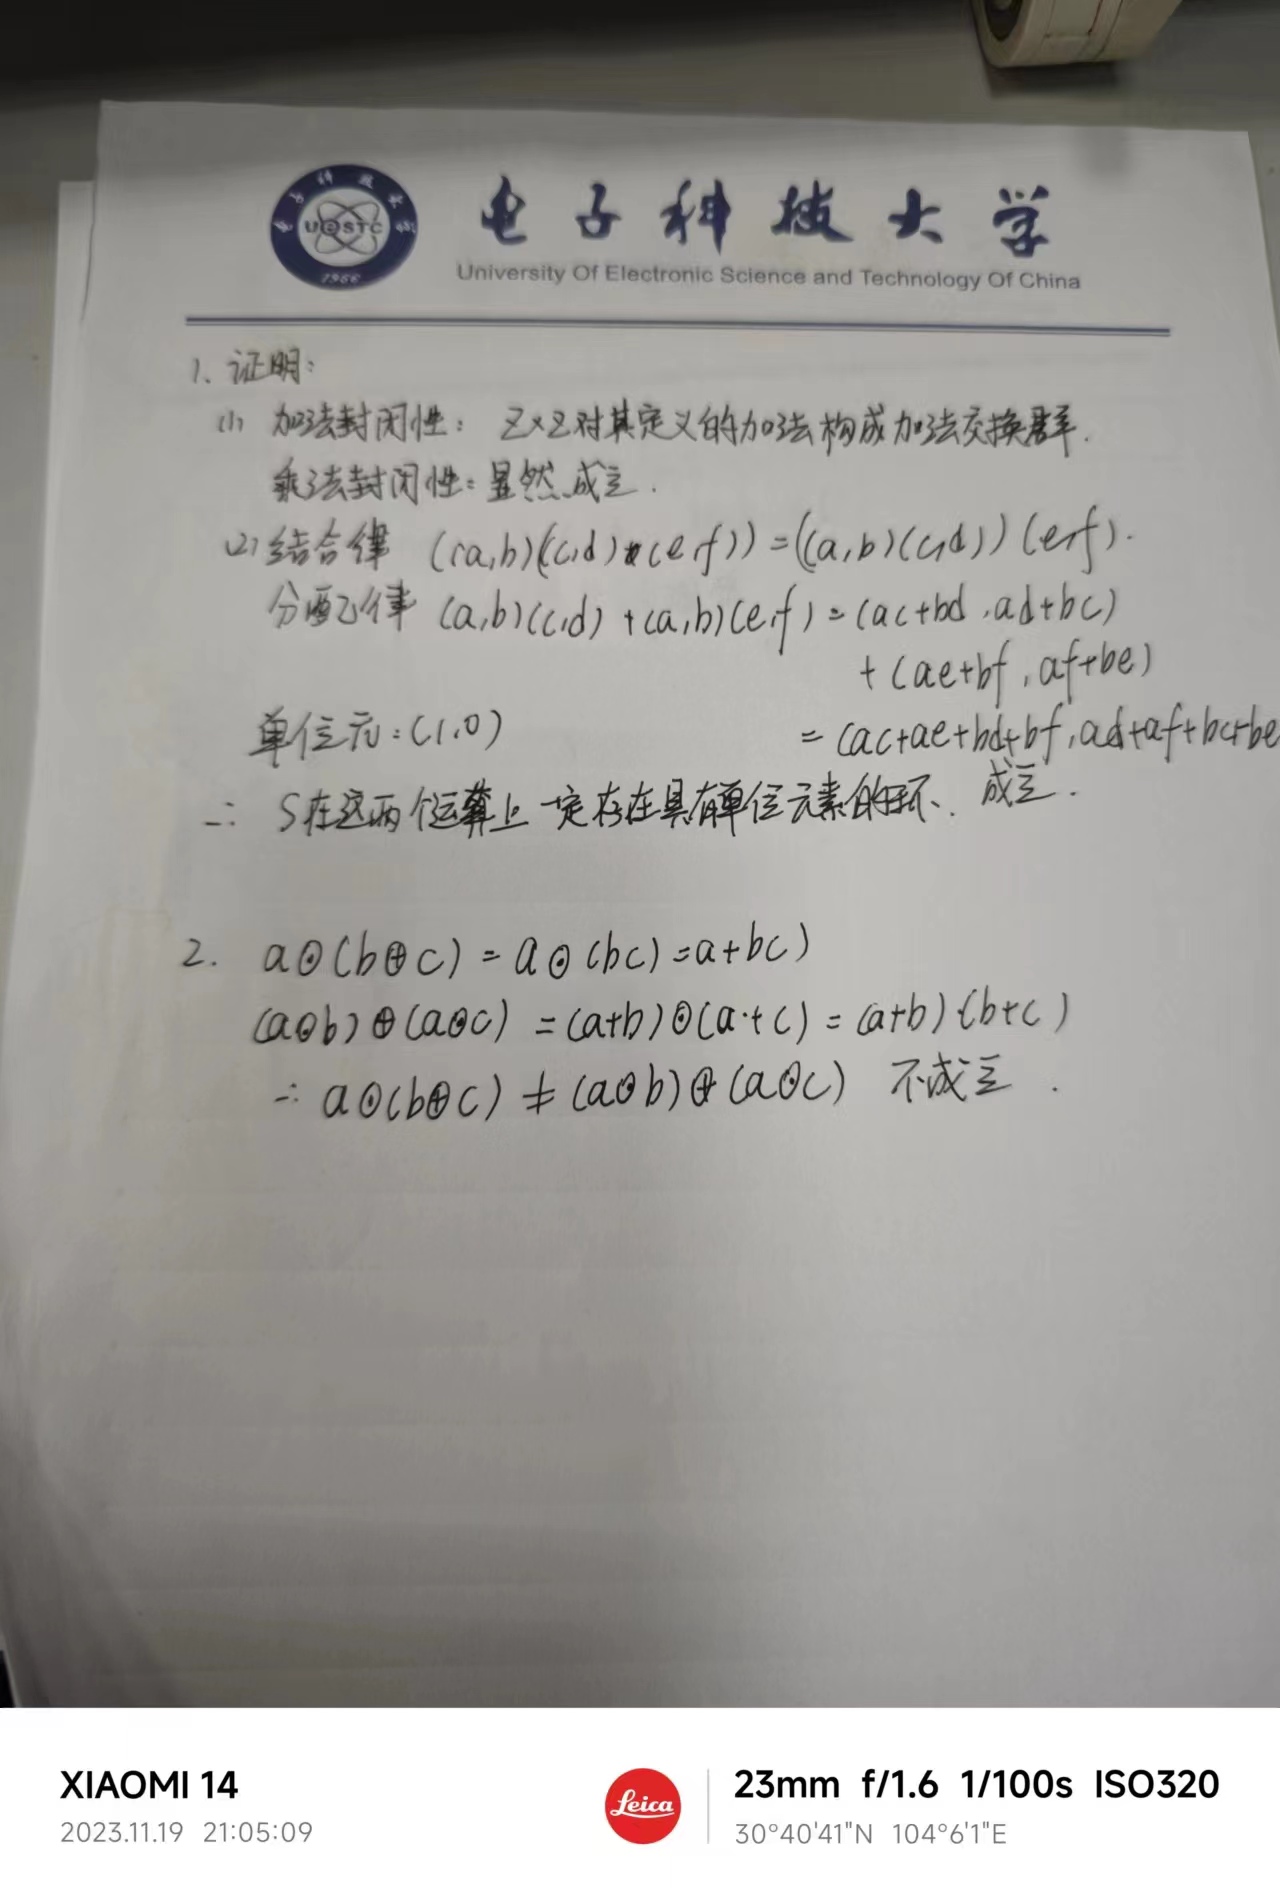 电子科技大学
University Of Electronic Science and Technology Of China
电子科技大学
UESTC
1956
1、证明:
(1) 加法封闭性: Z×Z对其定义的加法构成加法交换群.
乘法封闭性: 显然成立.
(2) 结合律 ((a,b)((c,d)*(e,f)) = ((a,b)(c,d))(e,f).
分配律 (a,b)(c,d) + (a,b)(e,f) = (ac+bd, ad+bc)
+ (ae+bf, af+be)
单位元: (1,0) = (ac+ae+bd+bf, ad+af+bc+be
成立.
∴ S在这两个运算上一定存在具有单位元素的环.
2. a⊙(b⊕c) = a⊙(bc) = a+bc)
(a⊙b)⊕(a⊙c) = (a+b)⊙(a·+c) = (a+b)·(b+c)
∴ a⊙(b⊕c) ≠ (a⊙b)⊕(a⊙c) 不成立.
XIAOMI 14
2023.11.19 21:05:09
Leica
23mm f/1.6 1/100s ISO320
30°40'41"N 104°6'1"E